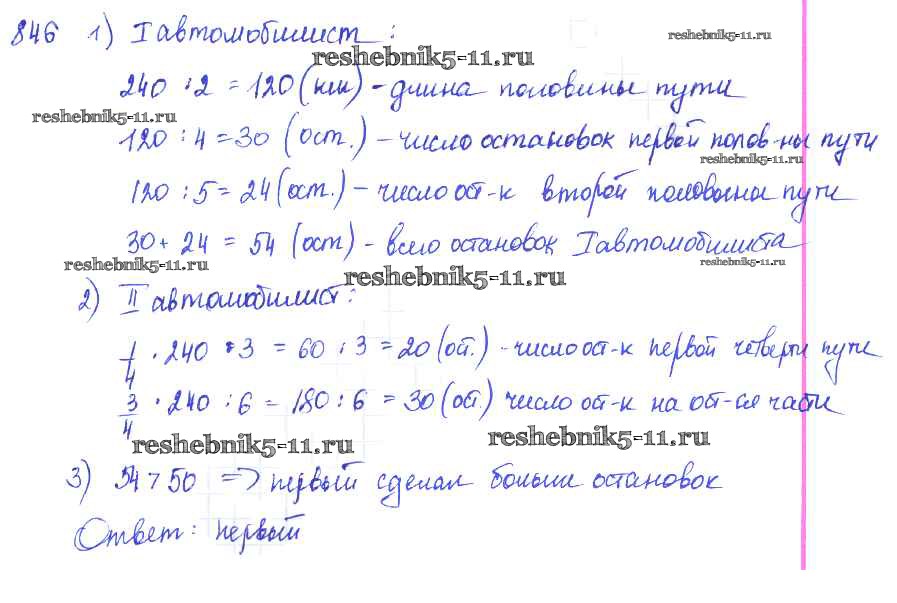 846 1) I автомобилист:
reshebnik5-11.ru
reshebnik5-11.ru
240 : 2 = 120 (км) - длина половины пути
reshebnik5-11.ru
120 : 4 = 30 (ост.) - число остановок первой полов-ны пути
reshebnik5-11.ru
120 : 5 = 24 (ост.) - число ост-к второй половины пути
30 + 24 = 54 (ост) - всего остановок I автомобилиста
reshebnik5-11.ru
reshebnik5-11.ru
reshebnik5-11.ru
2) II автомобилист:
1/4 · 240 : 3 = 60 : 3 = 20 (ост.) - число ост-к первой четверти пути
3/4 · 240 : 6 = 180 : 6 = 30 (ост) число ост-к на ост-ся части
reshebnik5-11.ru
reshebnik5-11.ru
3) 54 > 50 => первый сделал больше остановок
Ответ: первый